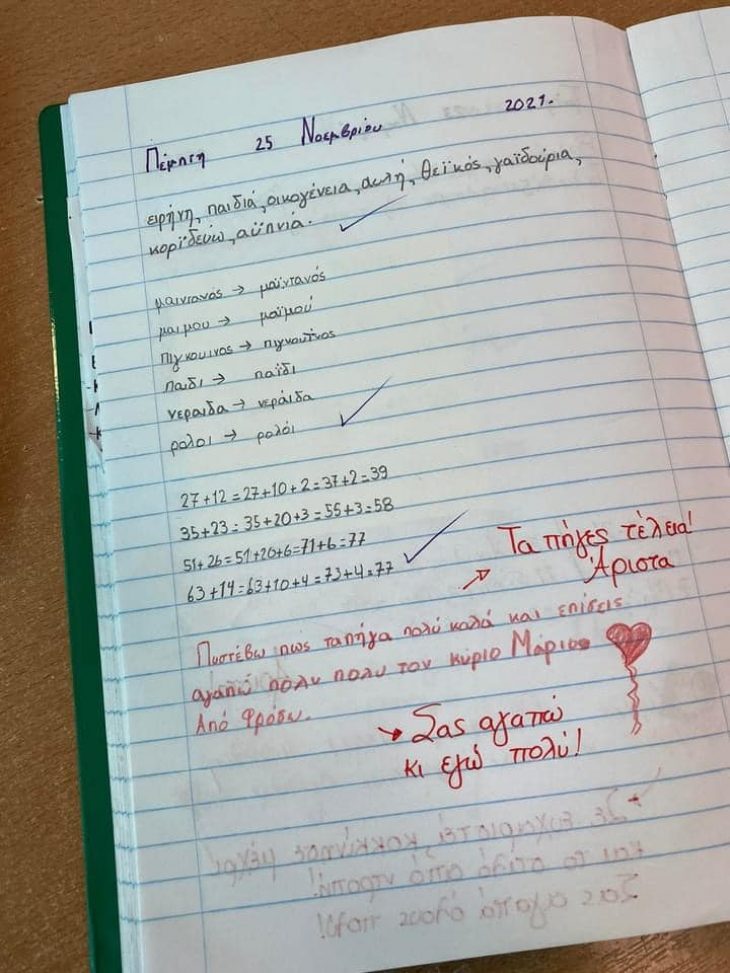 Πέμπτη 25 Νοεμβρίου 2021.
ειρήνη, παιδιά, οικογένεια, αυλή, θεϊκός, γαϊδούρια,
κοροϊδεύω, αϋπνία.
μαιντανός → μαϊντανός
μαιμου → μαϊμού
πιγκουινος → πιγκουΐνος
παιδι → παϊδι
νεραιδα → νεράιδα
ρολοι → ρολόι
27+12=27+10+2=37+2=39
35+23=35+20+3=55+3=58
51+26=51+20+6=71+6=77
63+14=63+10+4=73+4=77
Τα πήγες τέλεια!
Άριστα
Πιστέβω πως τα πήγα πολύ καλά και επίσεις
αγαπώ πολυ πολυ τον κύριο Μάριο
Από Φρόσω.
Σας αγαπώ
κι εγώ πολύ!